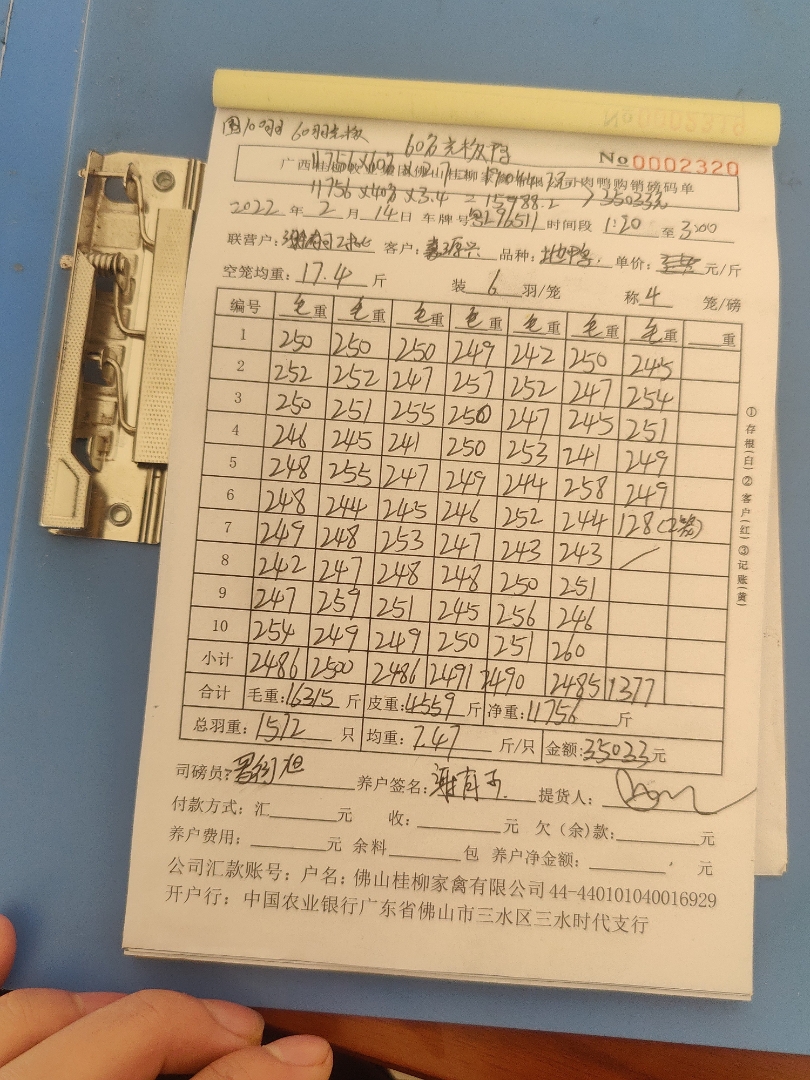 60羽
No 0002320
11756×60%×2.7
11756×40%×3.4 = 15988.2 > 35033元
2022年2月14日 车牌号 时间段 1:20 至 3:00
联营户: 客户: 品种: 单价: 元/斤
空笼均重: 17.4 斤 装 6 羽/笼 称 4 笼/磅
编号 毛重 毛重 毛重 毛重 毛重 毛重 毛重 重
1 250 250 250 249 242 250 245
2 252 252 247 257 252 247 254
3 250 251 255 250 247 245 251
4 246 245 241 250 253 241 249
5 248 255 247 249 244 258 249
6 248 244 245 246 252 244 128(2笼)
7 249 248 253 247 243 243 /
8 242 247 248 248 250 251
9 247 259 251 245 256 246
10 254 249 249 250 251 260
小计 2486 2500 2486 2491 2490 2485 1377
合计 毛重: 16315 斤 皮重: 4559 斤 净重: 11756 斤
总羽重: 1572 只 均重: 7.47 斤/只 金额: 35033元
司磅员: 养户签名: 提货人:
付款方式: 汇 元 收: 元 欠(余)款: 元
养户费用: 元 余料 包 养户净金额: 元
公司汇款账号: 户名: 佛山桂柳家禽有限公司 44-440101040016929
开户行: 中国农业银行广东省佛山市三水区三水时代支行
①存根(白) ②客户(红) ③记账(黄)